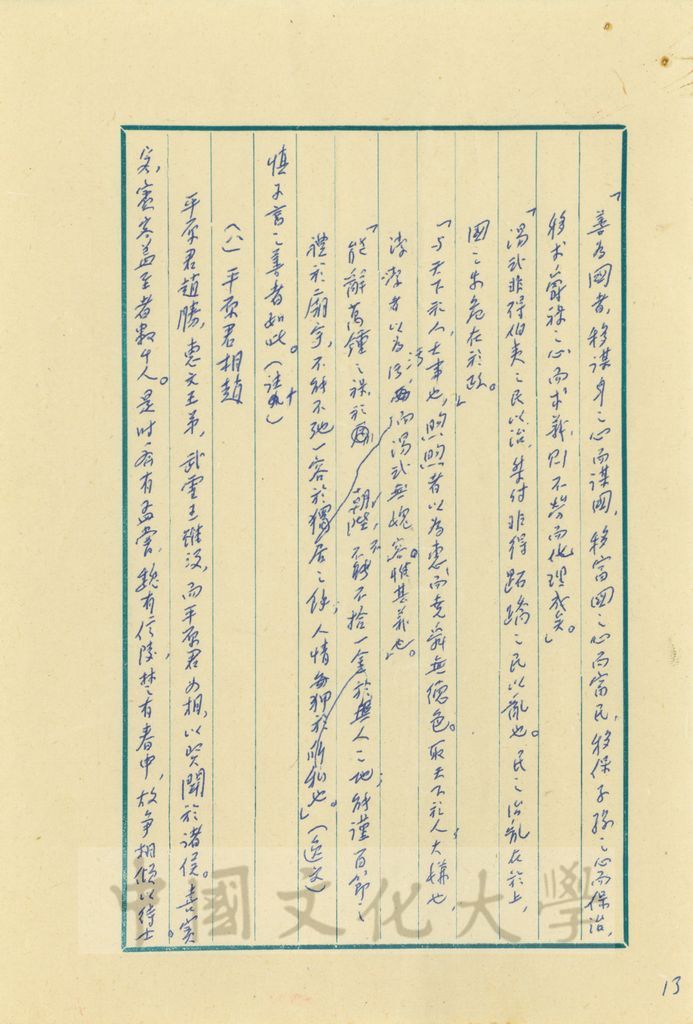 「善為國者，移謀身之心而謀國，移富國之心而富民，移保子孫之心而保治，
移求爵祿之心而求義，則不勞而化理成矣。」
「湯武非得伯夷之民以治，桀紂非得跖蹻之民以亂也。民之治亂在於上，
國之安危在於政。」
「與天下於人，大事也，煦煦者以為惠，而堯舜無德色。取天下於人，大嫌也，
潔潔者以為污，而湯武無愧容。惟其義也。」
「能辭萬鍾之祿於朝陛，不能不拾一金於無人之地；能謹百節之
禮於廟宇，不能不弛一容於獨居之餘；人情每狎於所私也。」（逸文）
慎子言之善者如此。（註十）
（八）平原君相趙
平原君趙勝，惠文王弟，武靈王雖沒，而平原君為相，以賢聞於諸侯。喜賓
客，賓客蓋至者數千人。是時齊有孟嘗，魏有信陵，楚有春申，故爭相傾以待士。
中國文化大學
13